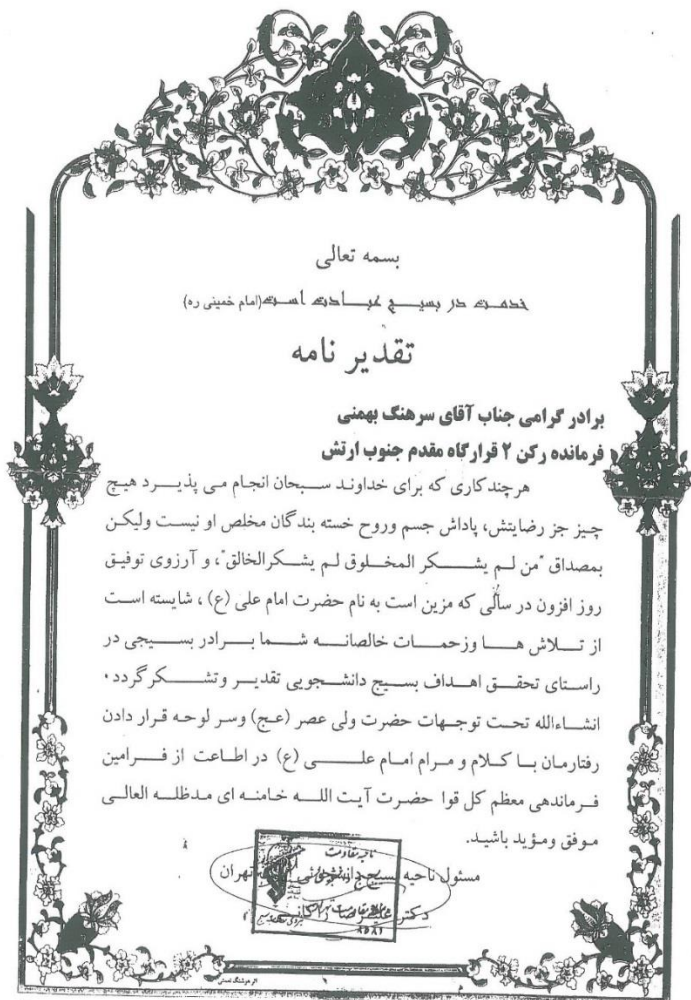 بسمه تعالی
خدمت در بسیج عبادت است(امام خمینی ره)
تقدیر نامه
برادر گرامی جناب آقای سرهنگ بهمنی
فرمانده رکن ۲ قرارگاه مقدم جنوب ارتش
هرچند کاری که برای خداوند سبحان انجام می پذیرد هیچ
چیز جز رضایتش، پاداش جسم وروح خسته بندگان مخلص او نیست ولیکن
بمصداق "من لم یشکر المخلوق لم یشکرالخالق"، و آرزوی توفیق
روز افزون در سالی که مزین است به نام حضرت امام علی (ع) ، شایسته است
از تلاش ها وزحمات خالصانه شما برادر بسیجی در
راستای تحقق اهداف بسیج دانشجویی تقدیر وتشکر گردد.
انشاءالله تحت توجهات حضرت ولی عصر (عج) وسر لوحه قرار دادن
رفتارمان با کلام و مرام امام علی (ع) در اطاعت از فرامین
فرماندهی معظم کل قوا حضرت آیت الله خامنه ای مدظله العالی
موفق ومؤید باشید.
ناحیه مقاومت
مسئول ناحیه بسیج دانشجویی تهران
دکتر